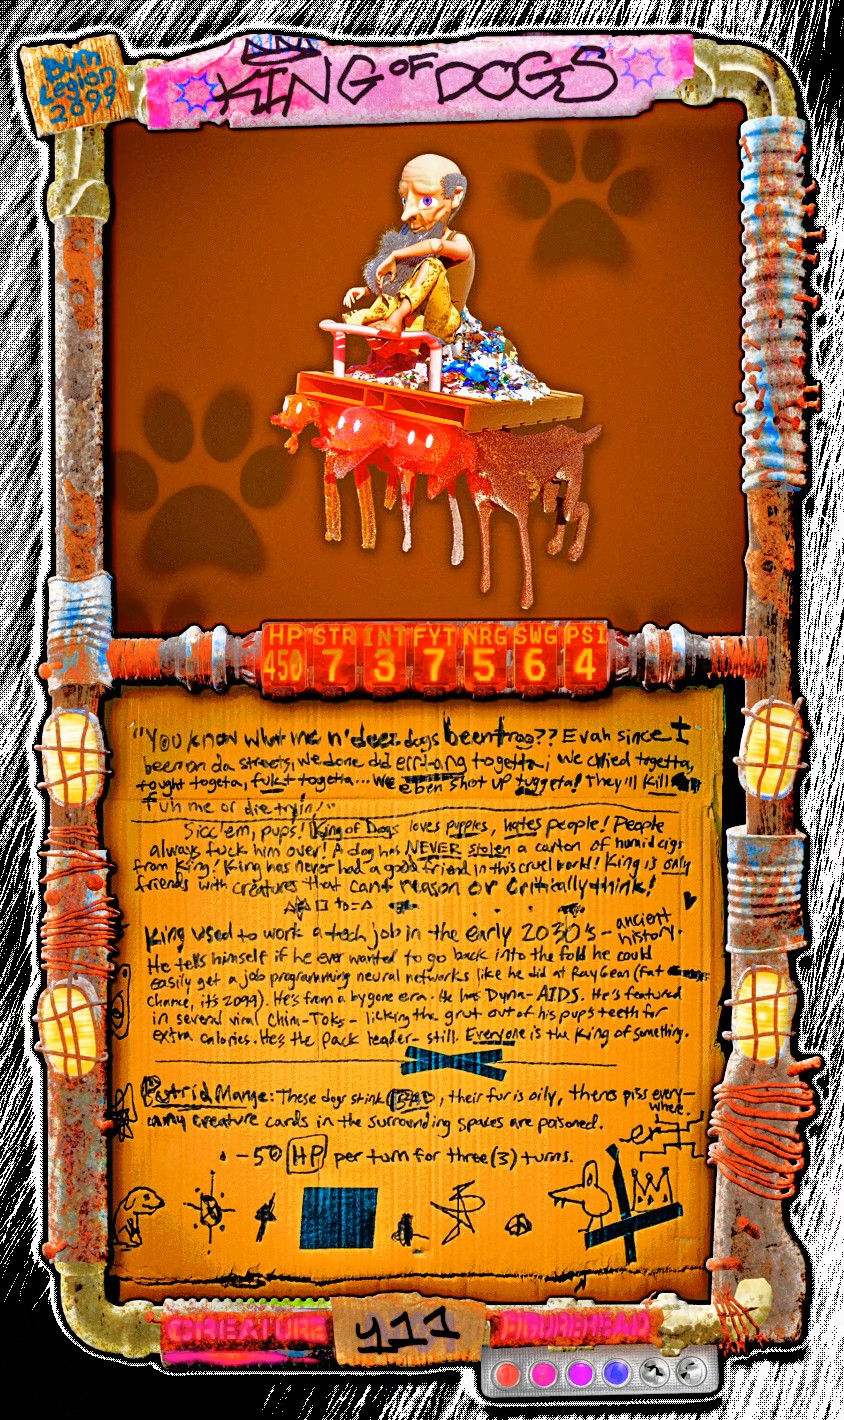 Bum
Legion
2099
KING OF DOGS
HP STR INT FYT NRG SWG PSI
450 7 3 7 5 6 4
"You know what me n' deez dogs been troo?? Evah since I
been on da streets, we done did errthang togetta; we cried togetta,
fought togeta, fukt togetta... We eben shot up tuggeta! They'll kill
fuh me or die tryin'."
Sicc'em, pups! King of Dogs loves puppies, hates people! People
always fuck him over! A dog has NEVER stolen a carton of humid cigs
from King! King has never had a good friend in this cruel world! King is only
friends with creatures that can't reason or critically think!
King used to work a tech job in the early 2030's - ancient
history.
He tells himself if he ever wanted to go back into the fold he could
easily get a job programming neural networks like he did at RayGean (Fat
Chance, it's 2099). He's from a bygone era. He has Dyna-AIDS. He's featured
in several viral Chim-Toks - licking the grut out of his pups teeth for
extra calories. He's the pack leader - still. Everyone is the King of something.
Putrid Mange: These dogs stink BAD, their fur is oily, there's piss every-
where.
enemy creature cards in the surrounding spaces are poisoned.
-50 HP per turn for three (3) turns.
CREATURE 411 FIGUREHEAD